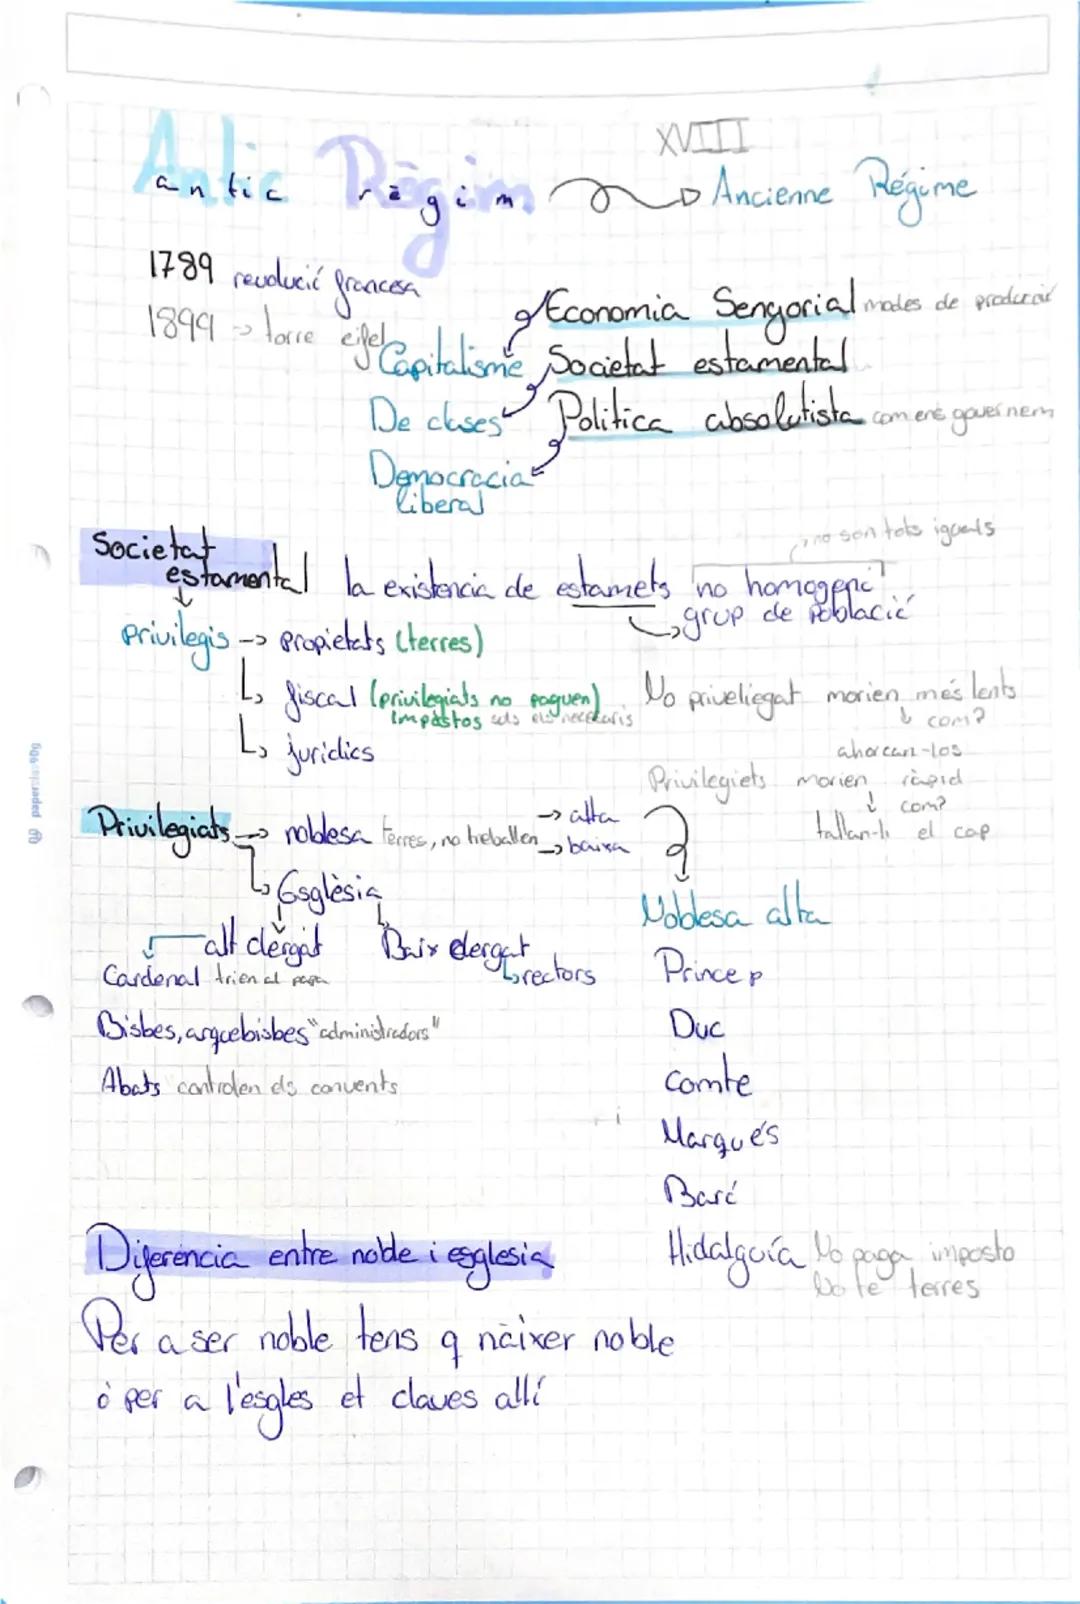 XVIII
Antic Règim
antic règim → Ancienne Régime
1789 revolució francesa
1899 → torre eifel
Economia Senyorial modes de producció
Capitalisme Societat estamental
De clases Politica absolutista com ens governem
Democracia
liberal
no son tots iguals
Societat
estamental la existencia de estamets no homogeni
grup de població
Privilegis → propietats (terres)
fiscal (privilegiats no paguen) No priveliegat morien més lents
impostos sols els necesaris com?
juridics ahorcan-los
Privilegiets morien ràpid
com?
tallan-li el cap
Privilegiats → noblesa terres, no treballen → alta
→ baixa
Església Noblesa alta
alt clergat Baix clergat
Cardenal trien al papa rectors Princep
Bisbes, arquebisbes "administradors" Duc
Abats controlen els convents Comte
Marqués
Baró
Diferencia entre noble i església Hidalguía No paga imposto
No te terres
Per a ser noble tens q náixer noble
ó per a l'esgles et claves allí